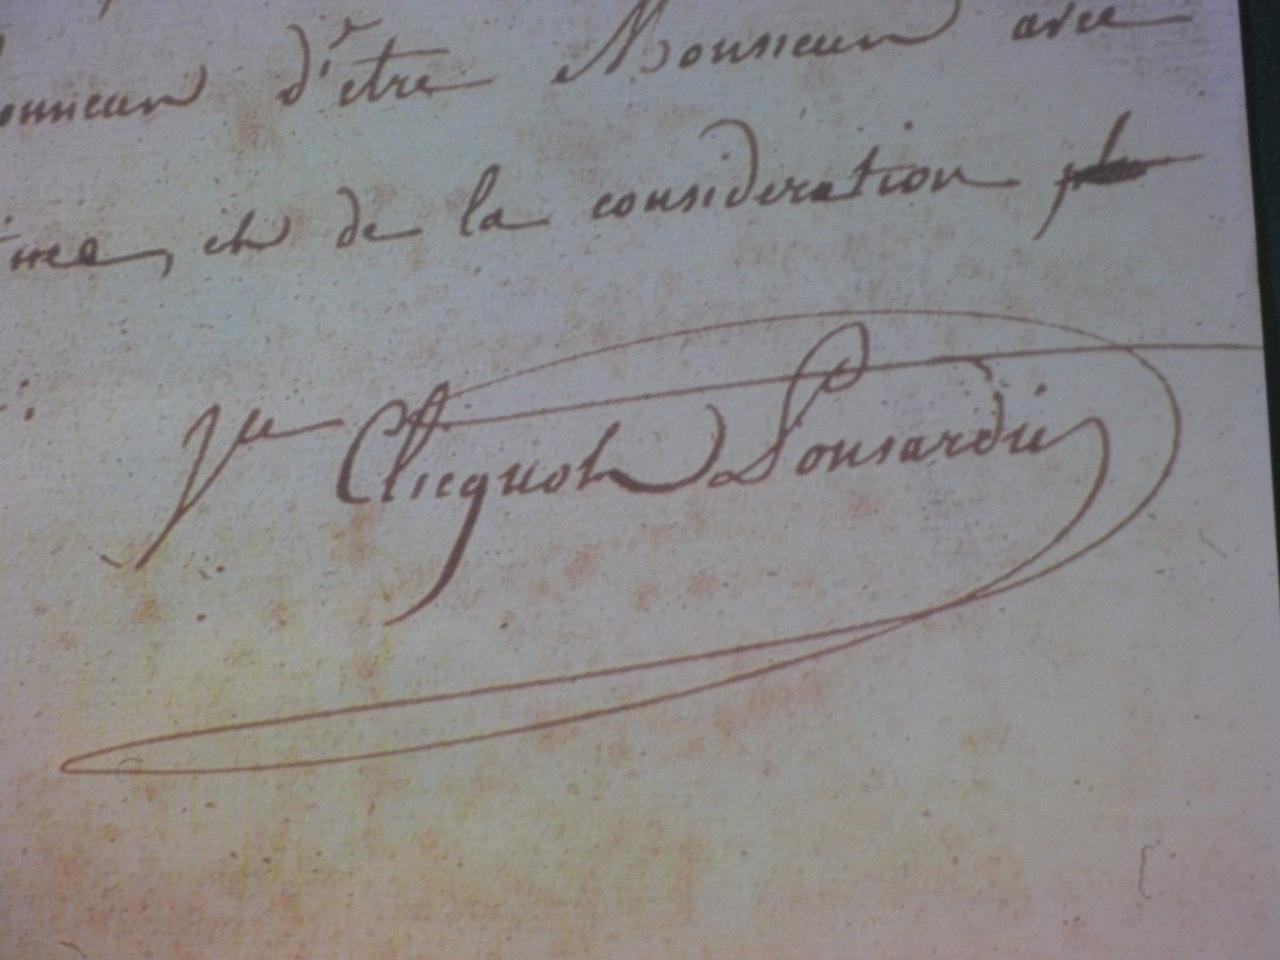 d'être Monsieur avec
et de la consideration
Vve Clicquot Ponsardin